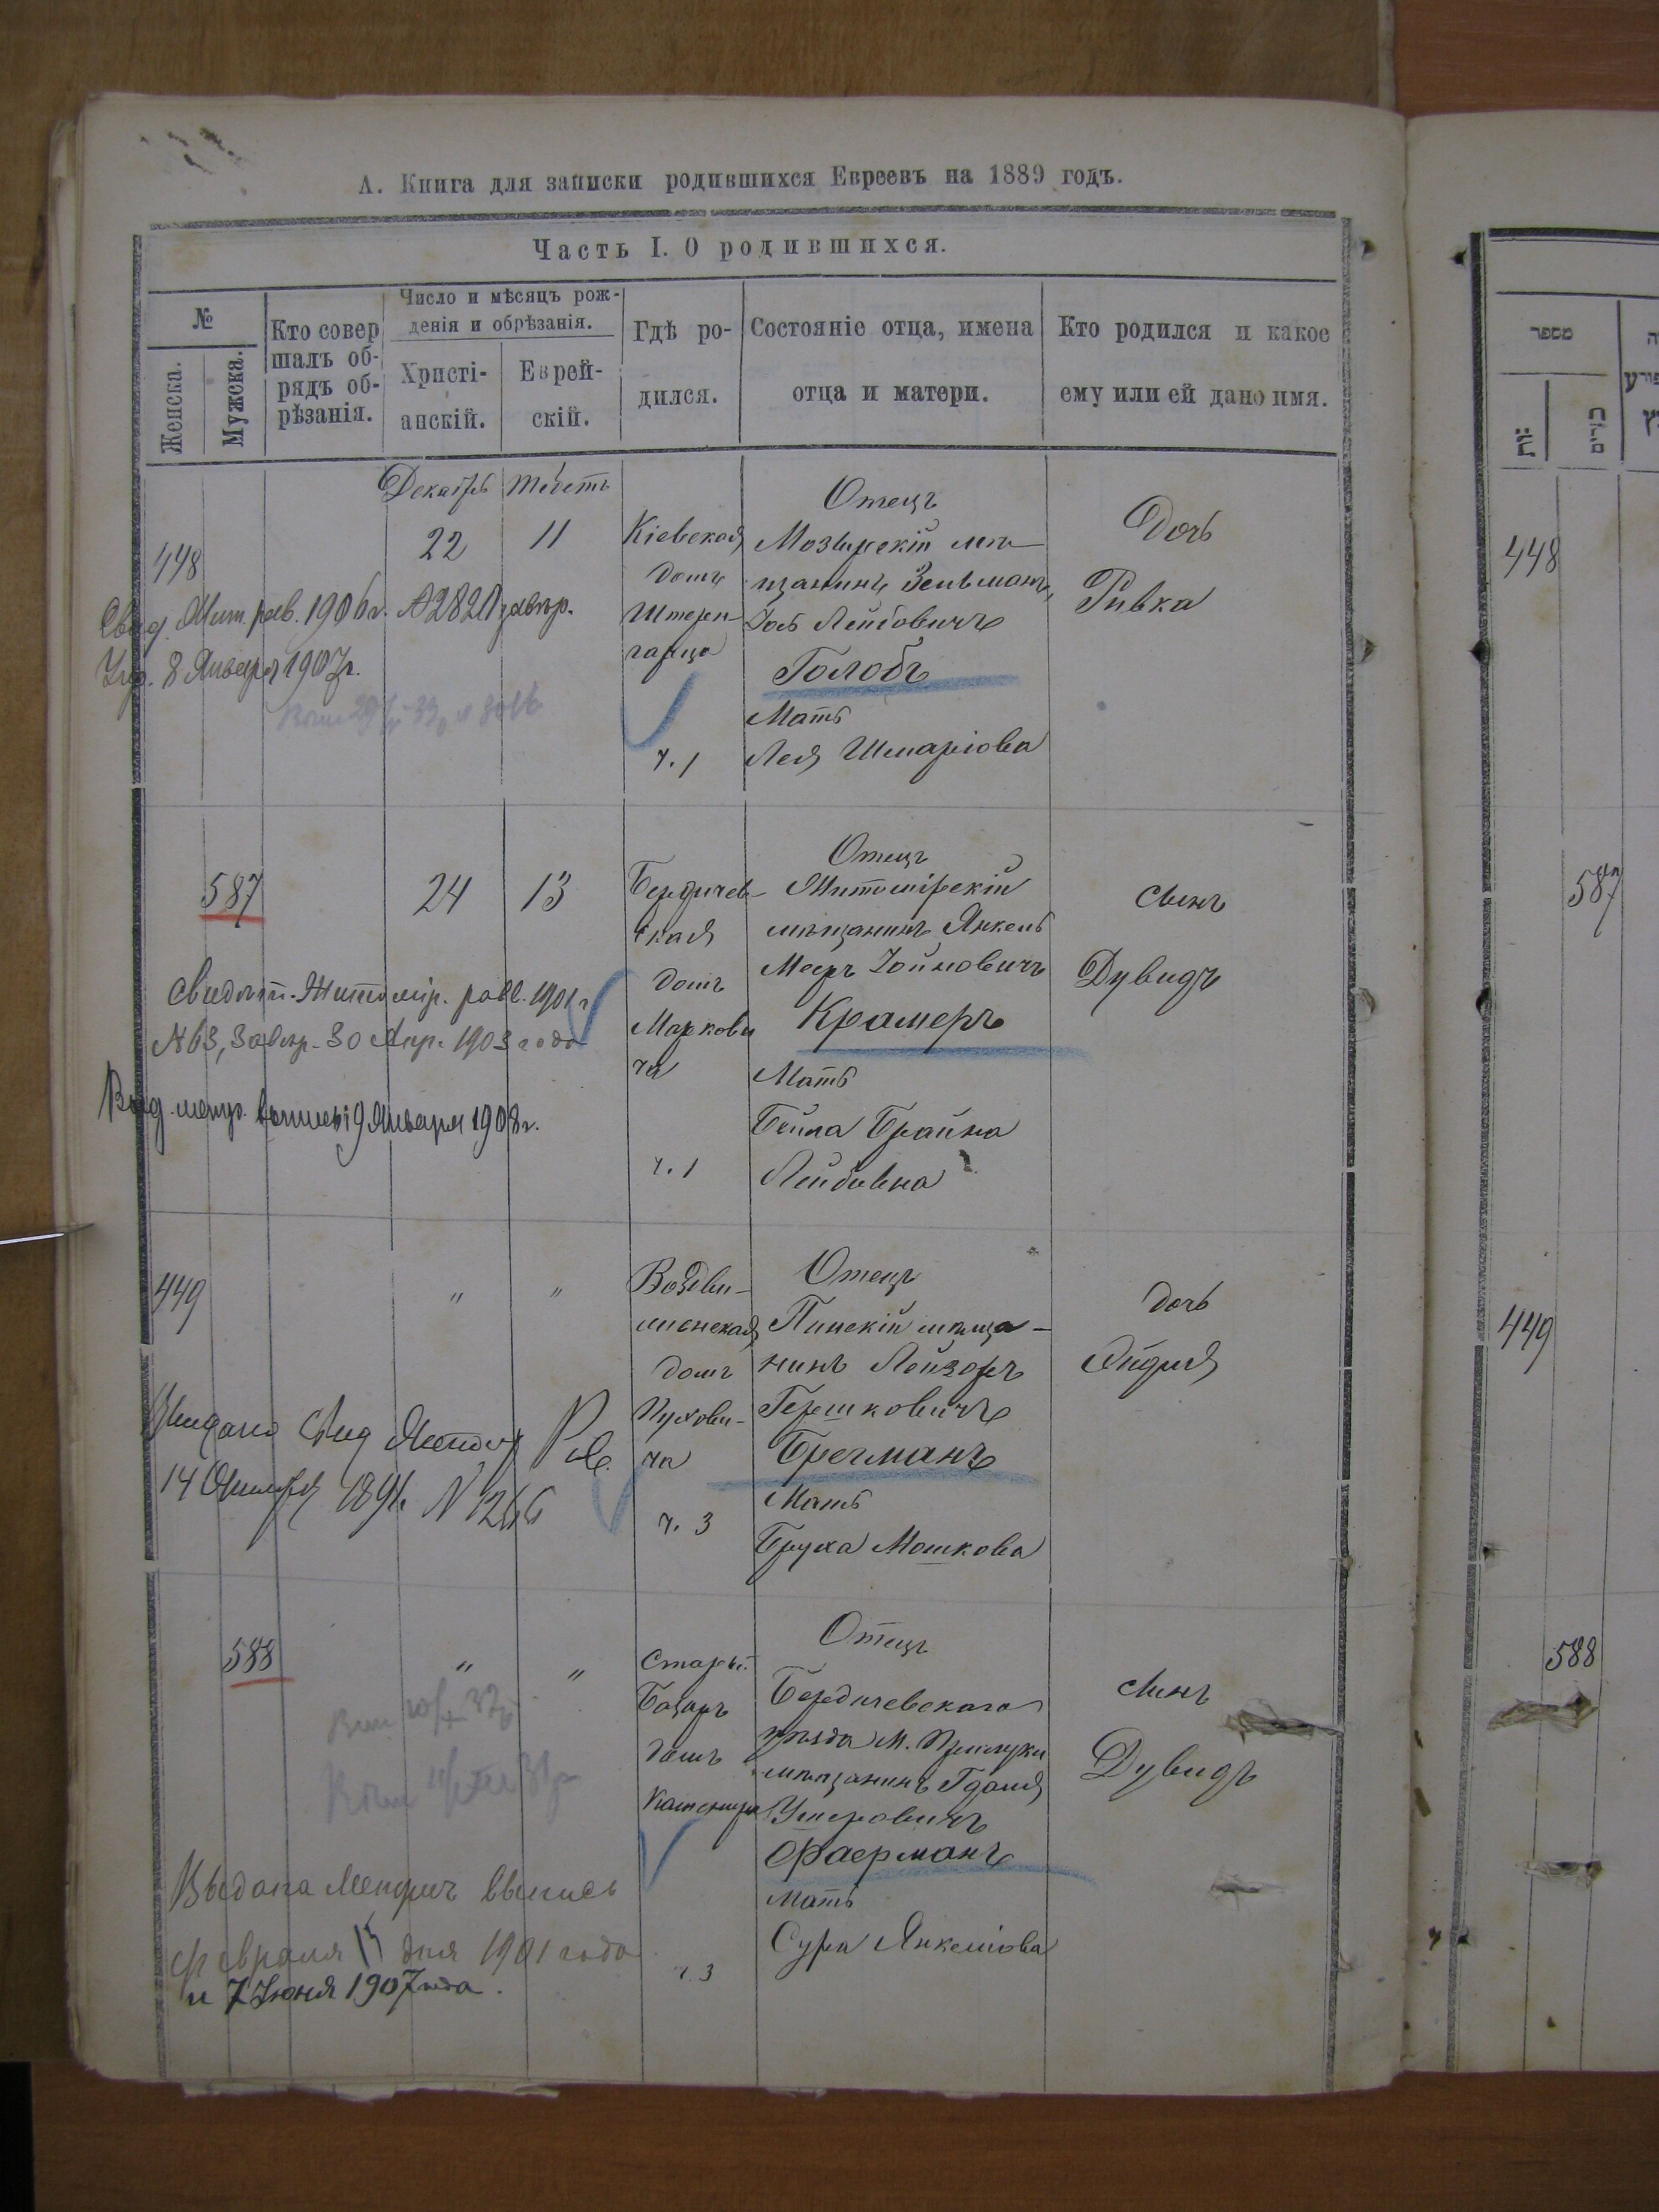 А. Книга для записки родившихся Евреевъ на 1889 годъ.
Часть I. О родившихся.
№
Женска.
Мужска.
Кто совер
шалъ об-
рядъ об-
рѣзанія.
Число и мѣсяцъ рож-
денія и обрѣзанія.
Христі-
анскій.
Еврей-
скій.
Гдѣ ро-
дился.
Состояніе отца, имена
отца и матери.
Кто родился и какое
ему или ей дано имя.
448
Декабрь
22
Тебетъ
11
Кіевская
домъ
Штерен
гарца
ч. 1
Отецъ
Мозырскій мѣ-
щанинъ Зельманъ
Іось Лейбовичъ
Голобъ
Мать
Лея Шмаріова
Дочь
Ривка
Свид. Жит. рав. 1906 г. №2821 завѣр.
8 Января 1907 г.
587
24
13
Бердичев-
ская
домъ
Маркови
ча
ч. 1
Отецъ
Житомірскій
мѣщанинъ Янкель
Мееръ Іойновичъ
Крамеръ
Мать
Бейла Брайна
Лейбовна
сынъ
Дувидъ
Свидѣт. Житомір. равв. 1901 г
№ 63, завѣр. 30 Апр. 1903 года
Выд. метр. выпись 19 Января 1908 г.
449
"
"
Воздви-
женская
домъ
Пухови-
ча
ч. 3
Отецъ
Пинскій мѣща-
нинъ Лейзоръ
Гершковичъ
Брегманъ
Мать
Бруха Мошкова
дочь
Эйдля
Выдано Свид
14 Октября 1891 г. N 1266
588
"
"
Старый
Базаръ
домъ
ч. 3
Отецъ
Бердичевскаго
уѣзда М. Прилуки
мѣщанинъ Гдаля
Ушеровичъ
Фаерманъ
Мать
Сура Янкелiова
сынъ
Дувидъ
Выдана Метрич выпись
Февраля 15 дня 1901 года
и 7 Іюня 1907 года.
מספר
448
587
449
588